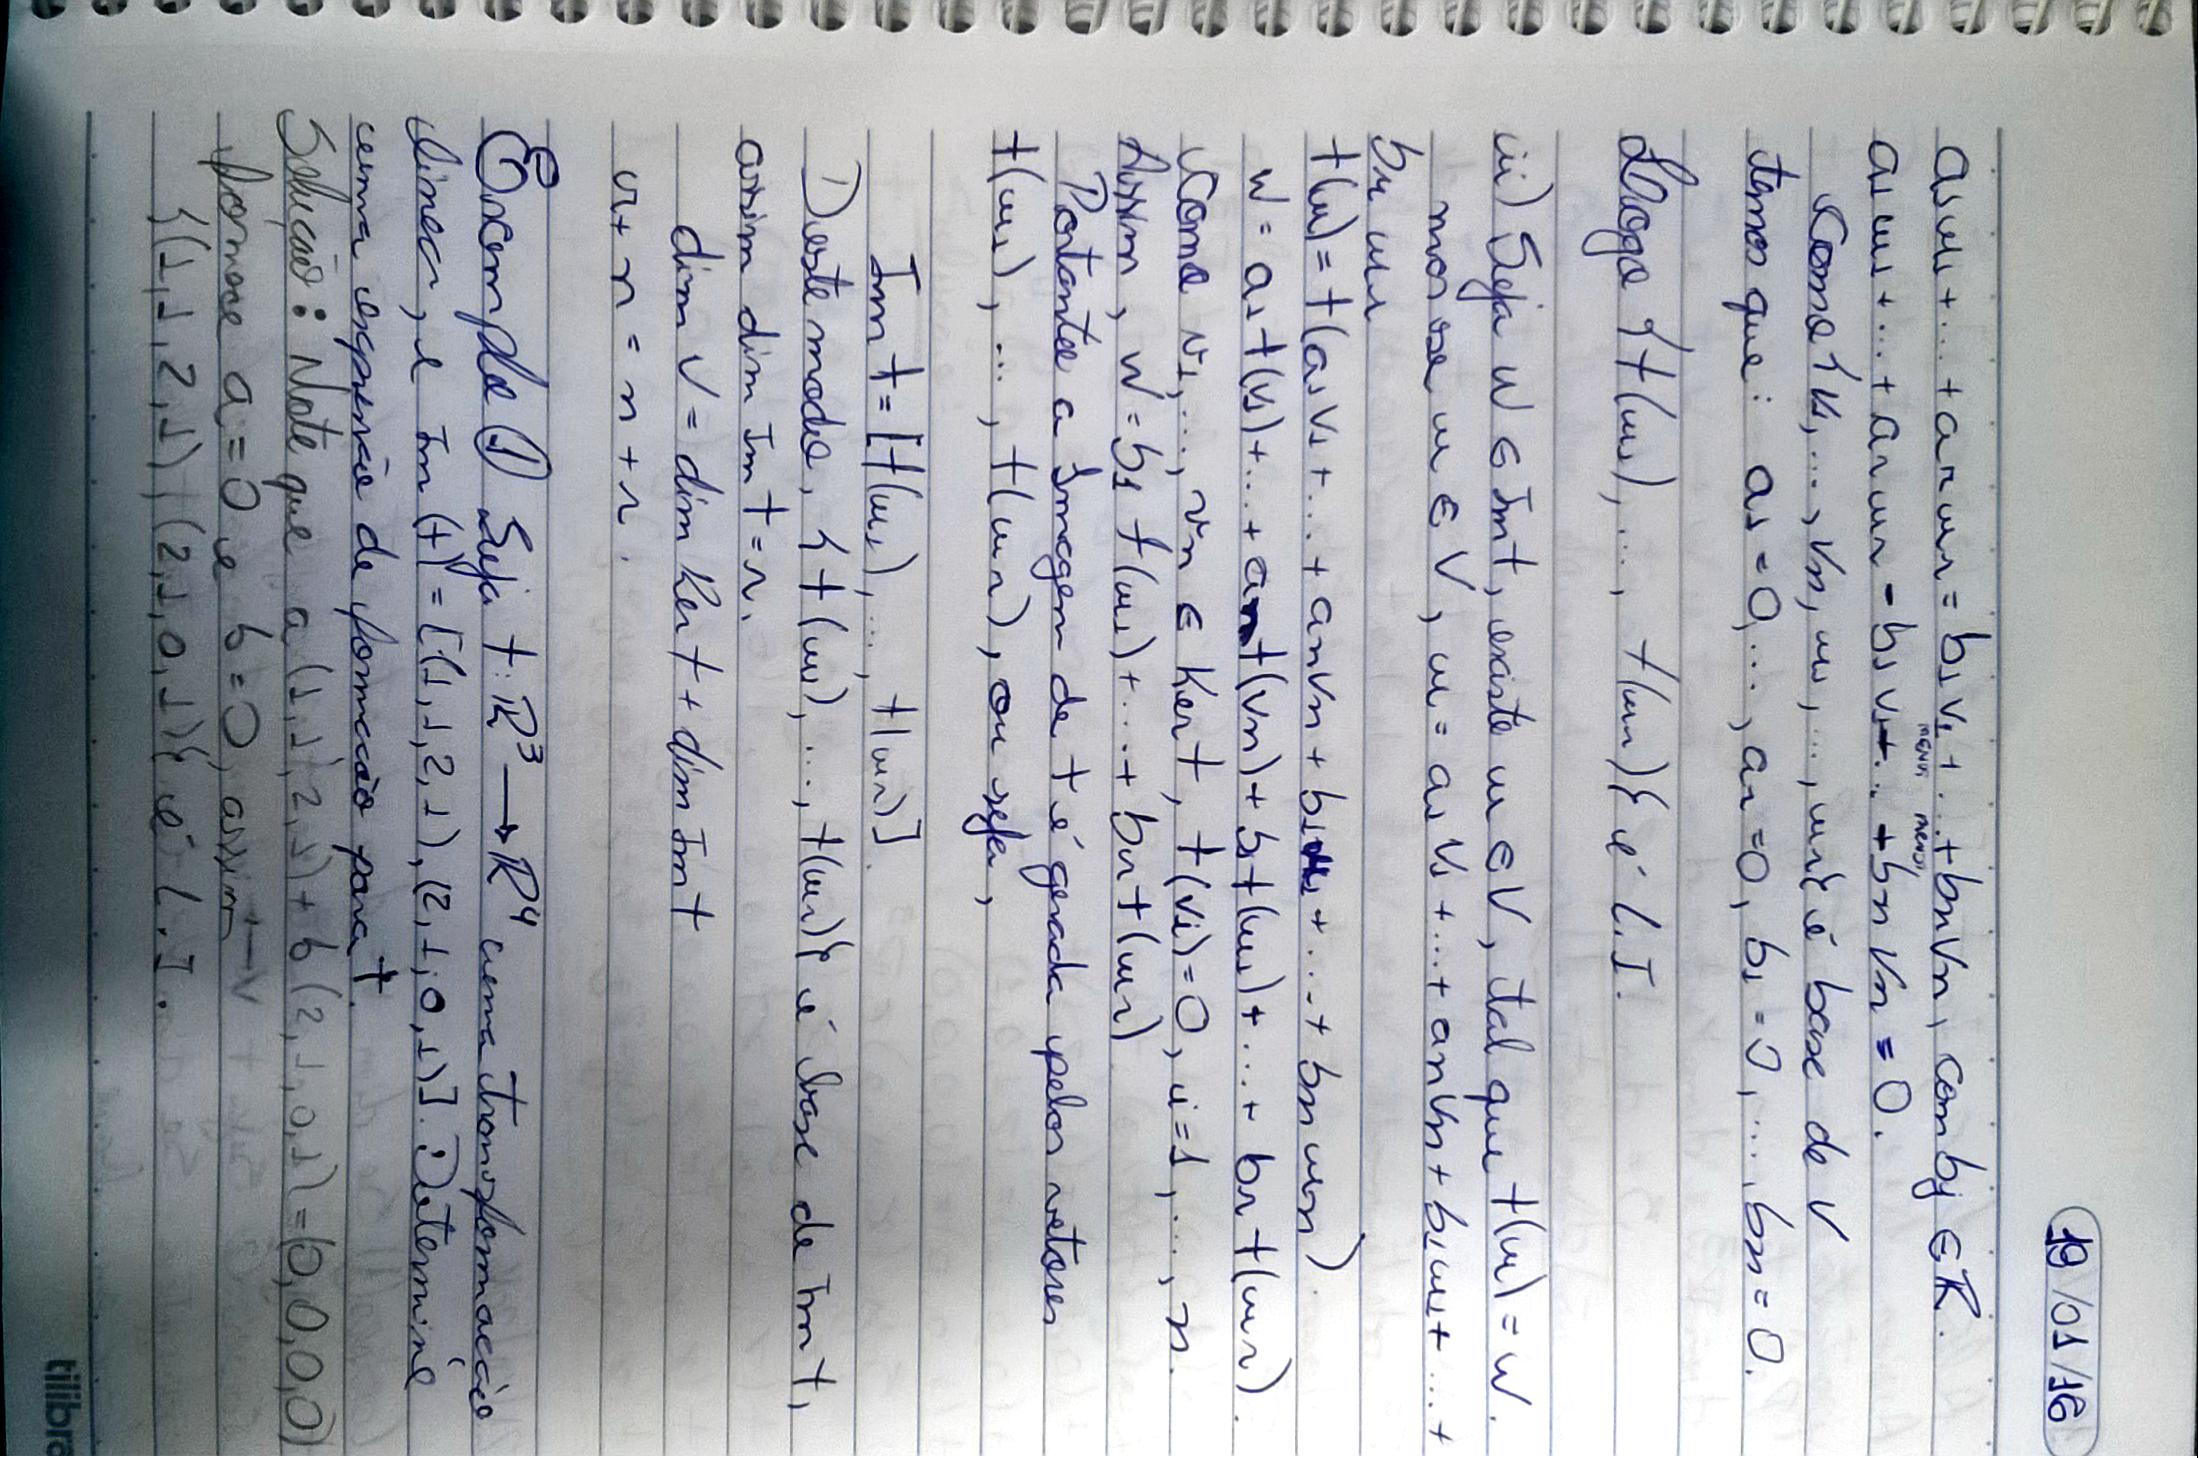 19/01/16
a₁u₁+...+aᵣuᵣ = b₁v₁+...+bₙvₙ, com bj ∈ R.
menos menos
a₁u₁+...+aᵣuᵣ - b₁v₁+...+bₙvₙ = 0.
Como {v₁,...,vₙ,u₁,...,uᵣ} é base de V
temos que: a₁=0,...,aᵣ=0, b₁=0,...,bₙ=0.
Logo {t(u₁),..., t(uᵣ)} é L.I.
iii) Seja w ∈ Im t, existe u ∈ V, tal que t(u) = w.
mas se u ∈ V, u = a₁v₁+...+aₙvₙ+b₁u₁+...+
bᵣuᵣ
t(u) = t(a₁v₁+...+aₙvₙ+b₁u₁+...+bₙuₙ).
w = a₁t(v₁)+...+aₙt(vₙ)+b₁t(u₁)+...+bᵣt(uᵣ).
Como v₁,...,vₙ ∈ Ker t, t(vi)=0, i=1,...,n.
Assim, w = b₁ t(u₁)+...+bᵣt(uᵣ)
Portanto a Imagem de t é gerada pelos vetores
t(u₁),...,t(uᵣ), ou seja,
Im t = [t(u₁),...,t(uᵣ)].
Deste modo, {t(u₁),...,t(uᵣ)} é base de Im t,
assim dim Im t = r.
dim V = dim Ker t + dim Im t
r+n = n+r.
Exemplo ① Seja t: R³ → R⁴ uma transformação
linear, e Im (t) = [(1,1,2,1),(2,1,0,1)]. Determine
uma expressão de formação para t.
Solução: Note que a(1,1,2,1)+b(2,1,0,1)=(0,0,0,0)
fornece a=0 e b=0, assim
{(1,1,2,1),(2,1,0,1)} é L.I.
tilibra